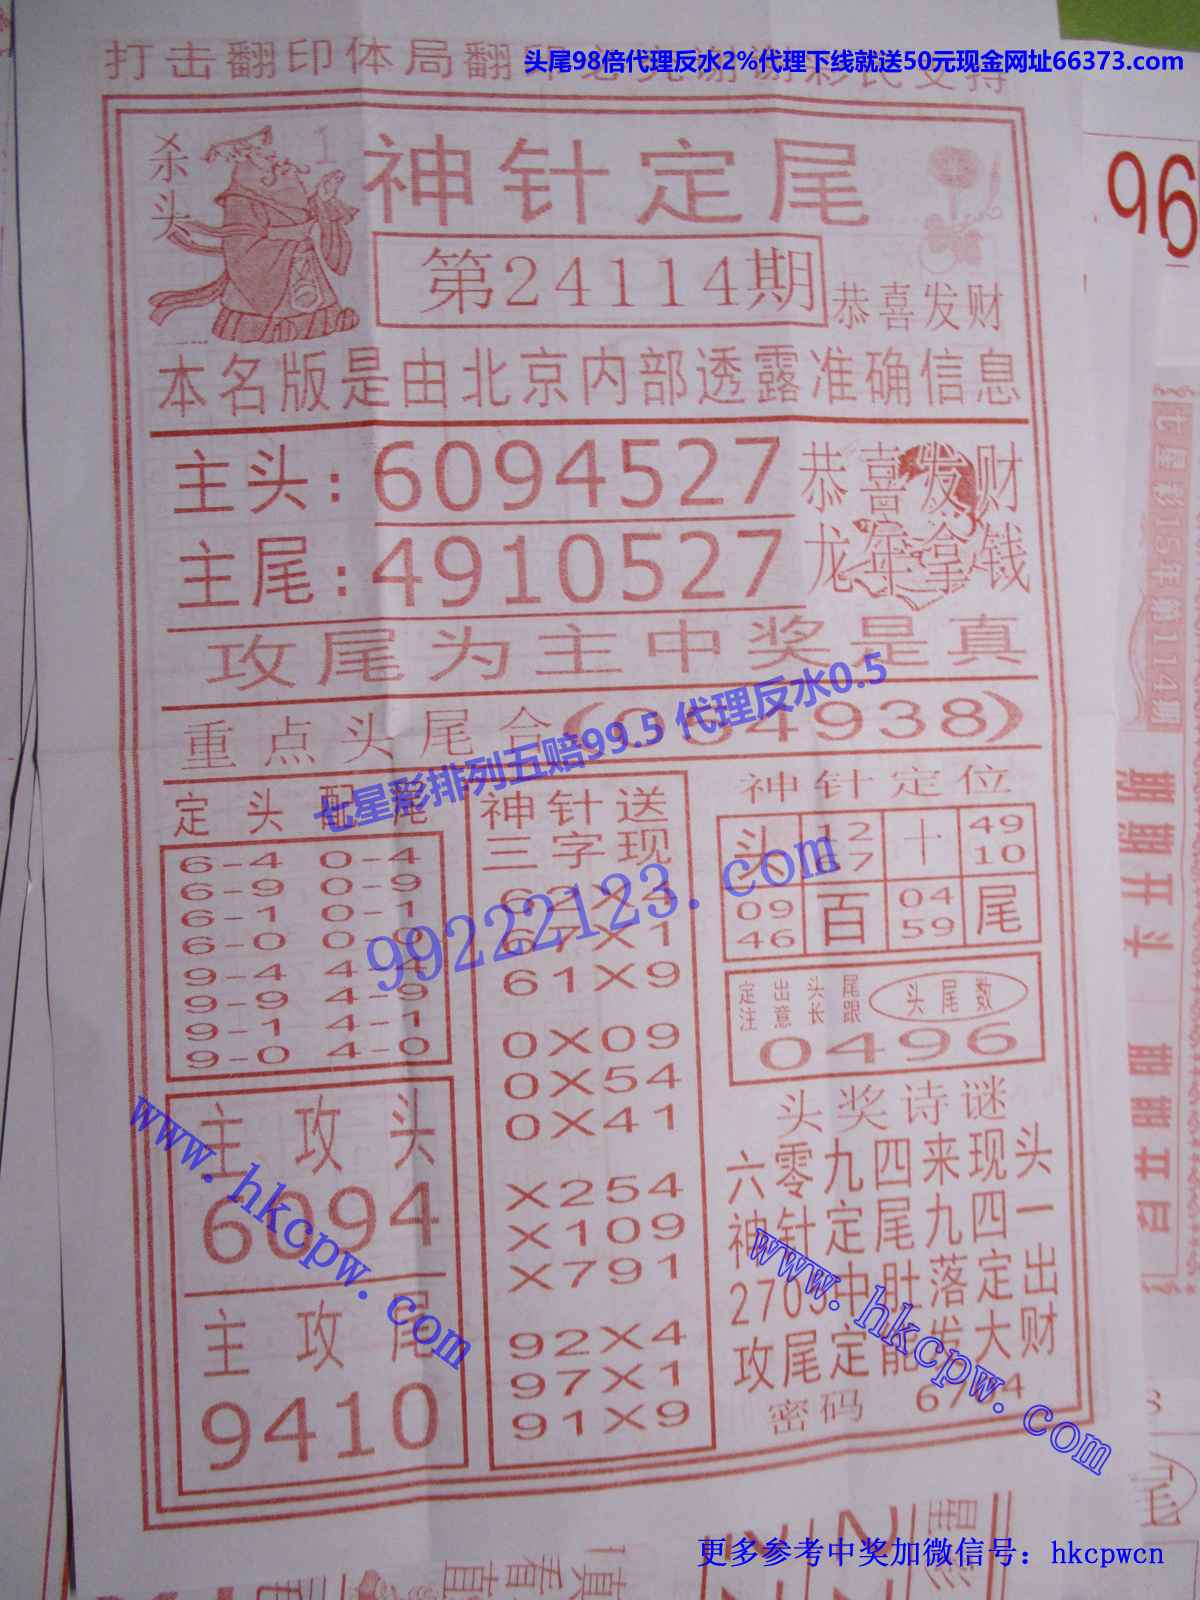 头尾98倍代理反水2%代理下线就送50元现金网址66373.com
打击翻印体局翻印必究谢谢彩民支持
杀头
1
神针定尾
第24114期
恭喜发财
本名版是由北京内部透露准确信息
主头:6094527
恭喜发财
主尾:4910527
龙年拿钱
攻尾为主中奖是真
重点头尾合
4938)
七星彩排列五赔99.5 代理反水0.5
定头配尾
6-4 0-4
6-9 0-9
6-1 0-1
6-0 0-0
9-4 4-4
9-9 4-9
9-1 4-1
9-0 4-0
神针送
三字现
62X4
67X1
61X9
0X09
0X54
0X41
X254
X109
X791
92X4
97X1
91X9
神针定位
头 12 67 十 49 10
09 46 百 04 59 尾
99222123.com
定出头尾
注意长跟
头尾数
0496
主攻头
6094
主攻尾
9410
头奖诗谜
六零九四来现头
神针定尾九四一
2705中肚落定出
攻尾定能发大财
密码
www.hkcpw.com
www.hkcpw.com
96
七星彩15年第114期
更多参考中奖加微信号：hkcpwcn